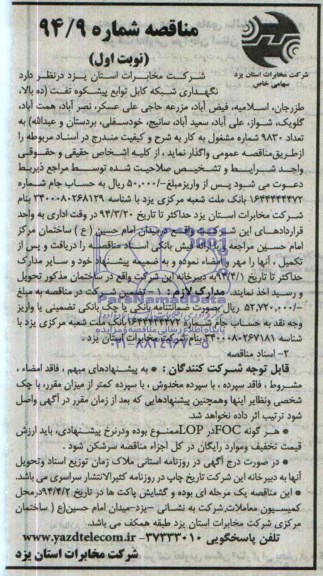 مناقصه شماره ۹۴/۹
(نوبت اول)
شرکت مخابرات استان یزد
سهامی خاص
شرکت مخابرات استان یزد درنظر دارد
نگهداری شبکه کابل توابع پیشکوه تفت (ده بالا،
طزرجان، اسلامیه، فیض آباد، مزرعه حاجی علی عسکر، نصر آباد، همت آباد،
گلویک، شواز، علی آباد، سعید آباد، سانیج، خودسفلی، بردستان و عبدالله) به
تعداد ۹۸۳۰ شماره مشغول به کار به شرح و کیفیت مندرج در اسناد مربوطه را
ازطریق مناقصه عمومی واگذار نماید، از کلیه اشخاص حقیقی و حقوقی
واجد شرایط و تشخیص صلاحیت شده توسط مراجع ذیربط
دعوت می شود پس از واریز مبلغ ۵۰،۰۰۰/- ریال به حساب جام شماره
۱۶۴۴۴۴۴۷۲ بانک ملت شعبه مرکزی یزد با شناسه ۳۰۰۰۸۰۲۶۸۱۲۹ بنام
شرکت مخابرات استان یزد حداکثر تا تاریخ ۹۴/۳/۲۰ در وقت اداری به واحد
قراردادهای این شرکت واقع در میدان امام حسین (ع) ساختمان مرکز
امام حسین مراجعه و با ارائه فیش بانکی اسناد مناقصه را دریافت و پس از
تکمیل، آنها را مهر و امضاء نموده و به ضمیمه پیشنهاد خود و سایر مدارک
حداکثر تا تاریخ ۹۴/۴/۱ به دبیرخانه این شرکت واقع در ساختمان مذکور تحویل
و رسید اخذ نمایند. مدارک لازم: ۱- تضمین شرکت در مناقصه به مبلغ
۵۲،۷۲۰،۰۰۰/- ریال بصورت ضمانتنامه بانکی یا چک بانکی تضمینی یا واریز
وجه نقد به حساب جام شماره ۱۶۴۴۴۴۴۷۲ بانک ملت شعبه مرکزی یزد با
شناسه ۳۰۰۰۸۰۲۶۷۱۸۱ بنام شرکت مخابرات استان یزد.
۲- اسناد مناقصه
قابل توجه شرکت کنندگان: * به پیشنهادهای مبهم، فاقد امضاء،
مشروط، فاقد سپرده، با سپرده مخدوش، با سپرده کمتر از میزان مقرر، با چک
شخصی ونظایر اینها وهمچنین پیشنهادهایی که بعد از زمان مقرر در آگهی واصل
شود ترتیب اثر داده نخواهد شد.
* هر گونه FOC در LOP ممنوع بوده ودرنرخ پیشنهادی، باید ارزش
قیمت تخفیف وموارد رایگان در کل اجزاء مناقصه سرشکن شود.
* در صورت درج آگهی در روزنامه استانی ملاک زمان توزیع اسناد وتحویل
آنها به دبیرخانه این شرکت تاریخ چاپ در روزنامه کثیرالانتشار سراسری می باشد.
* این مناقصه یک مرحله ای بوده و گشایش پاکت ها در تاریخ ۹۴/۴/۲ درمحل
کمیسیون معاملات شرکت به نشانی - یزد-میدان امام حسین(ع) ( ساختمان
مرکزی شرکت مخابرات استان یزد طبقه همکف می باشد.
تلفن پاسخگویی ۳۷۳۳۳۰۱۰- www.yazdtelecom.ir
شرکت مخابرات استان یزد
ParsNamadData
پایگاه اطلاع رسانی مناقصه و مزایده
۰۲۱-۸۸۳۴۹۶۷۰-۵